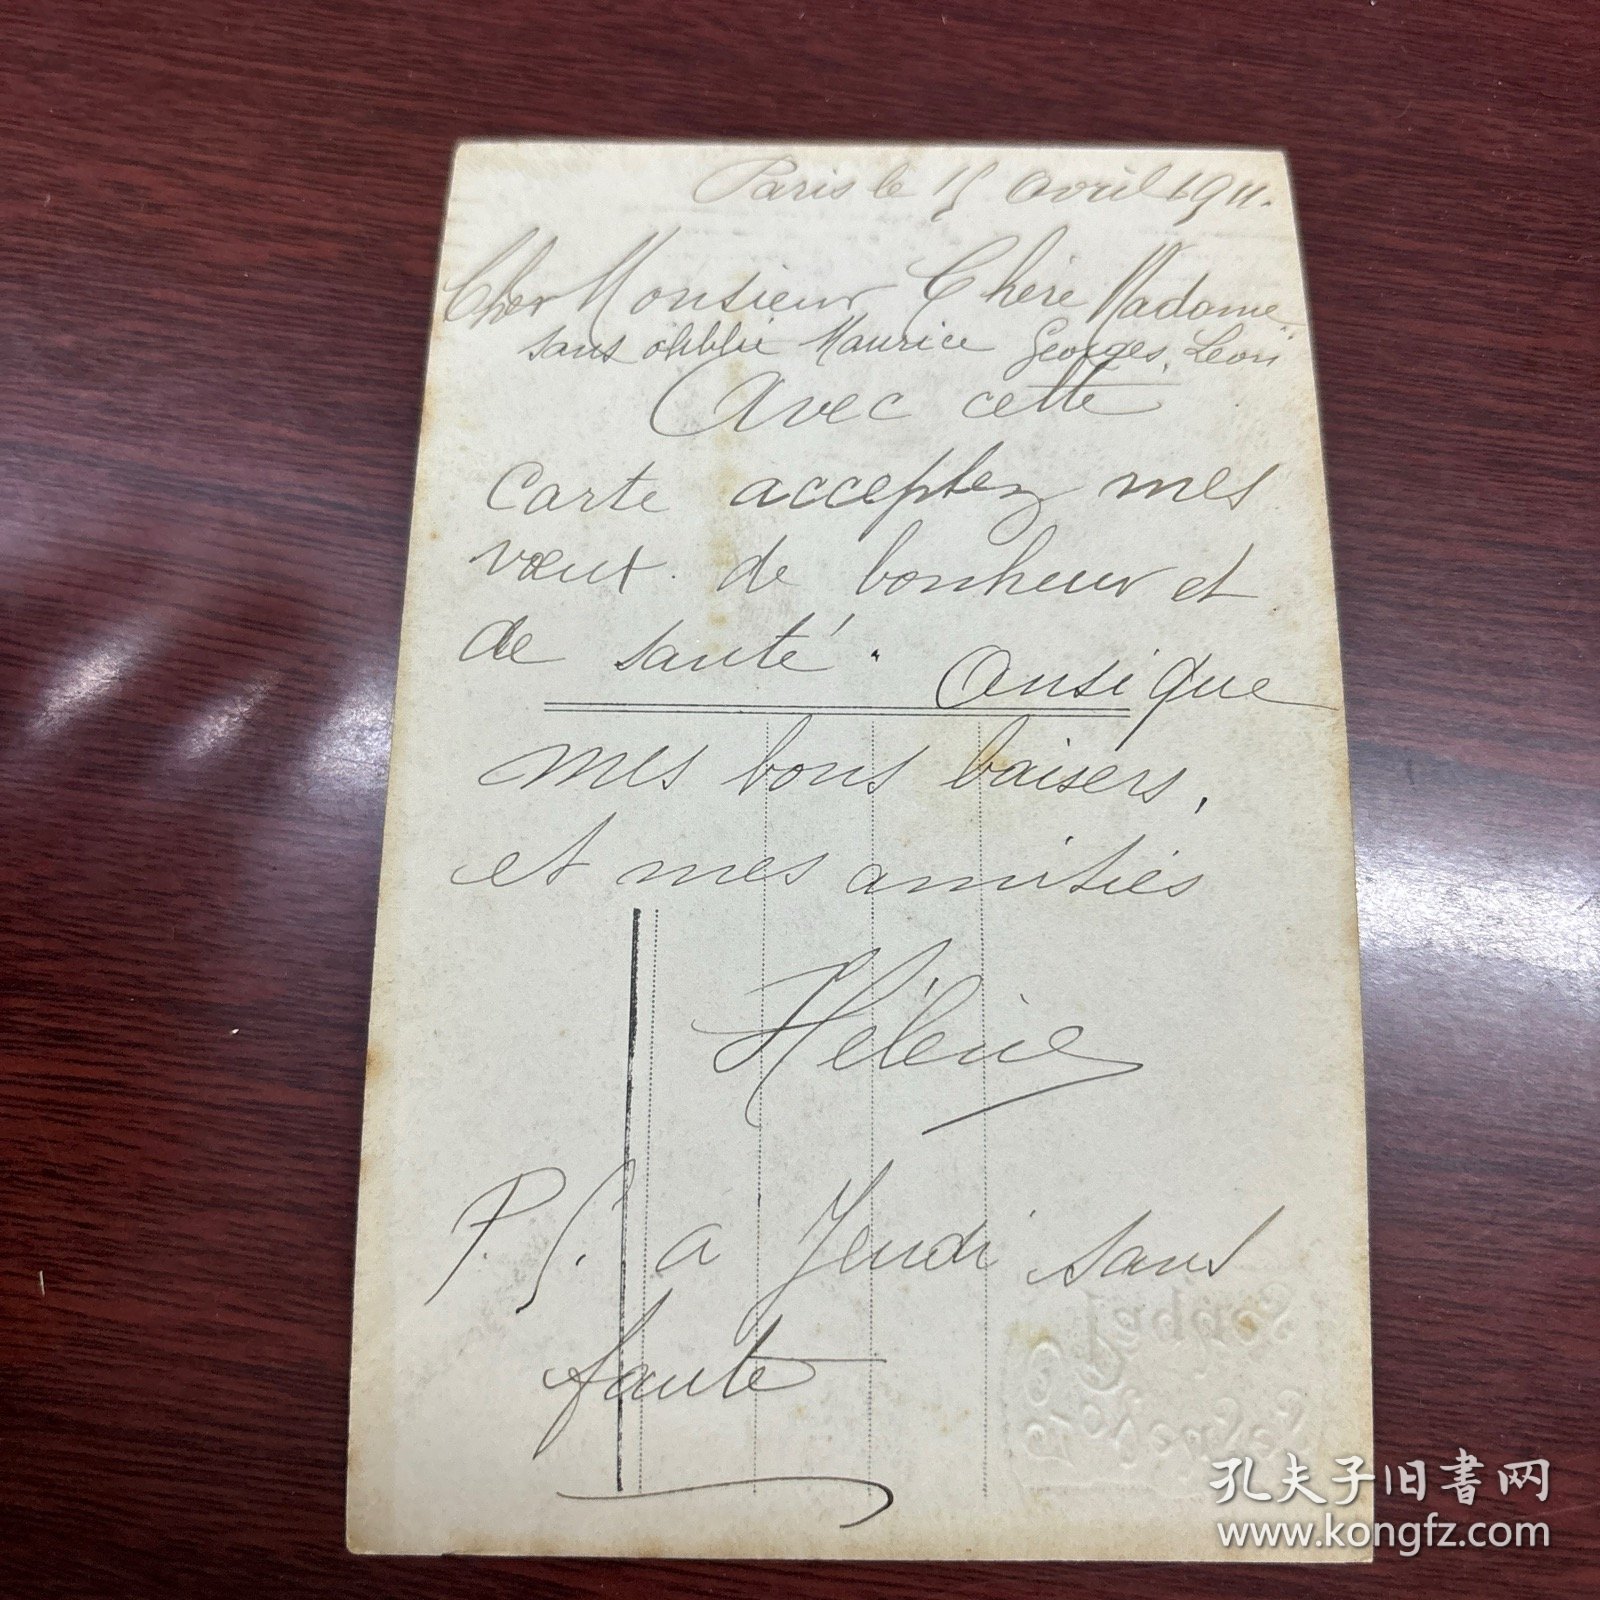 Paris le 15 Avril 1911.
Cher Monsieur Chère Madame
sans oublié Maurice Georges, Leon
Avec cette
Carte acceptez mes
vœux de bonheur et
de santé. Ansique
mes bons baisers,
et mes amitiés
Hélène
P.S. a Jeudi sans
faute
孔夫子旧书网
www.kongfz.com